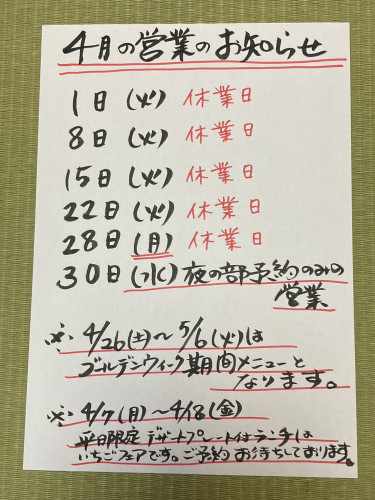 4月の営業のお知らせ
1日(火) 休業日
8日(火) 休業日
15日(火) 休業日
22日(火) 休業日
28日(月) 休業日
30日(水)夜の部予約のみの
営業
※. 4/26(土)～5/6(火)は
ゴールデンウィーク期間メニューと
なります。
※. 4/7(月)～4/18(金)
平日限定デザートプレート付ランチは
いちごフェアです。ご予約お待ちしております。